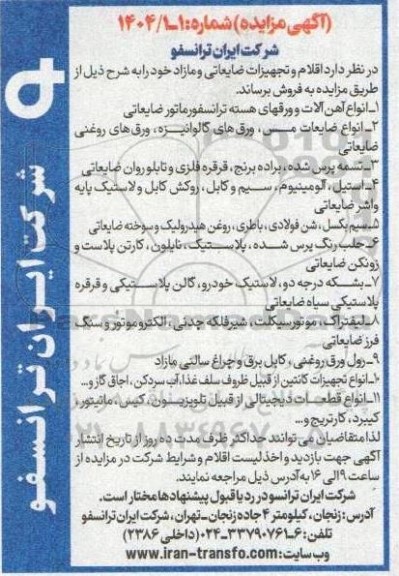 (آگهی مزایده) شماره: ۱-۱۴۰۴/۱
شرکت ایران ترانسفو
در نظر دارد اقلام و تجهیزات ضایعاتی و مازاد خود را به شرح ذیل از
طریق مزایده به فروش برساند.
۱-انواع آهن آلات و ورقهای هسته ترانسفورماتور ضایعاتی
۲-انواع ضایعات مس، ورق های گالوانیزه، ورق های روغنی
ضایعاتی
۳-تسمه پرس شده، براده برنج، قرقره فلزی و تابلو روان ضایعاتی
۴-استیل، آلومینیوم، سیم و کابل، روکش کابل و لاستیک پایه
واشر ضایعاتی
۵-سیم بکسل، شن فولادی، باطری، روغن هیدرولیک و سوخته ضایعاتی
۶-حلب رنگ پرس شده، پلاستیک، نایلون، کارتن پلاست و
زونکن ضایعاتی
۷-بشکه درجه دو، لاستیک خودرو، گالن پلاستیکی و قرقره
پلاستیکی سیاه ضایعاتی
۸-لیفتراک، موتورسیکلت، شیرفلکه چدنی، الکتروموتور و سنگ
فرز ضایعاتی
۹-رول ورق روغنی، کابل برق و چراغ سالنی مازاد
۱۰-انواع تجهیزات کانتین از قبیل ظروف سلف غذا، آب سردکن، اجاق گاز و...
۱۱-انواع قطعات دیجیتالی از قبیل تلویزیون، کیس، مانیتور،
کیبرد، کارتریج و...
لذا متقاضیان می توانند حداکثر ظرف مدت ده روز از تاریخ انتشار
آگهی جهت بازدید و اخذ لیست اقلام و شرایط شرکت در مزایده از
ساعت ۹ الی ۱۶ به آدرس ذیل مراجعه نمایند.
شرکت ایران ترانسو در رد یا قبول پیشنهادها مختار است.
آدرس: زنجان، کیلومتر ۴ جاده زنجان-تهران، شرکت ایران ترانسفو
تلفن: ۶-۳۳۷۹۰۷۶۱-۰۲۴ (داخلی ۲۳۸۶)
وب سایت: www.iran-transfo.com
شرکت ایران ترانسفو